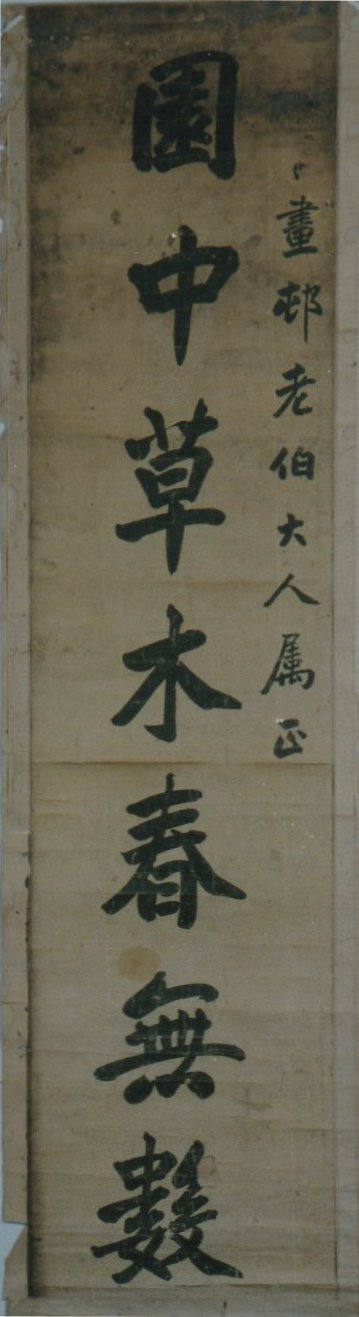 畫邨老伯大人属正
園中草木春無數